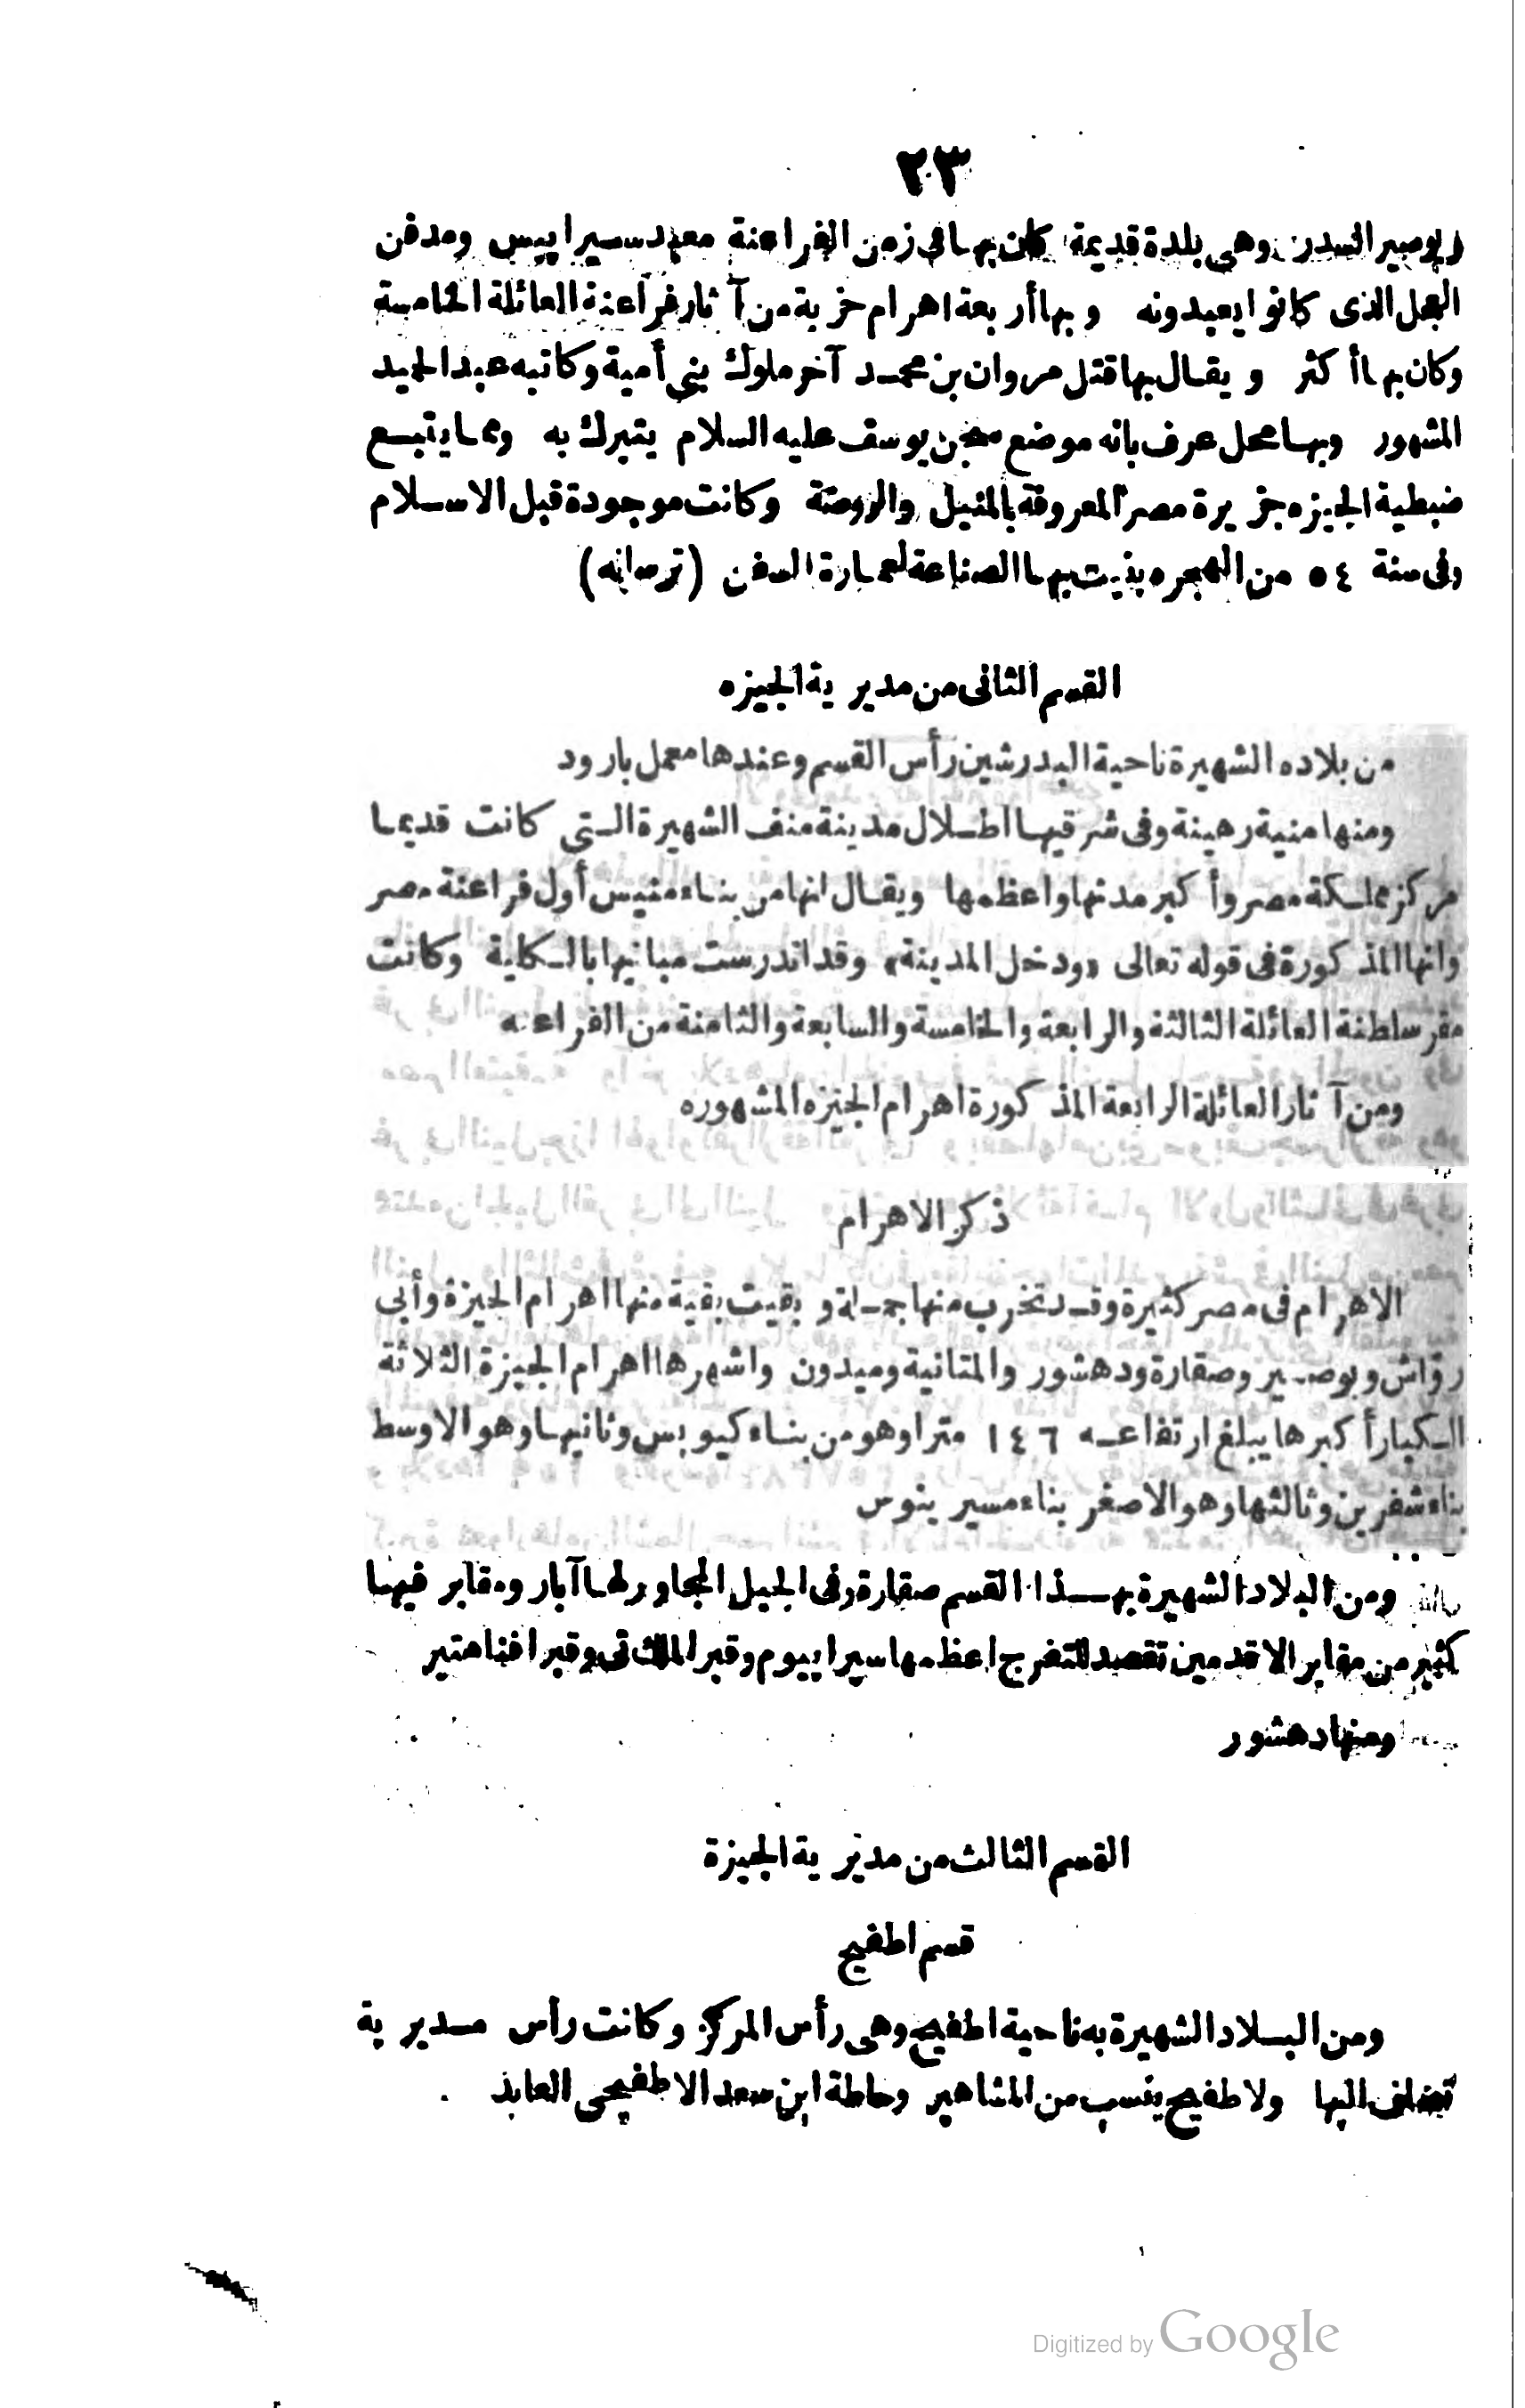 ٢٣
وبوصير السدر وهى بلدة قديمة كان بها فى زمن الفراعنة معبد سيرابيس ومدفن
العجل الذى كانوا يعبدونه وبها أربعة اهرام خربة من آثار فراعنة العائلة الخامسة
وكان بها أكثر ويقال بها قتل مروان بن محمد آخر ملوك بنى أمية وكاتبه عبد الحميد
المشهور وبها محل عرف بانه موضع سجن يوسف عليه السلام يتبرك به ومما يتبع
ضبطية الجيزه جزيرة مصر المعروفة بالمنيل والروضة وكانت موجودة قبل الاسلام
وفى سنة ٥٤ من الهجره بنيت بها الصناعة لعمارة السفن (ترسانه)
القسم الثانى من مديرية الجيزه
من بلاده الشهيرة ناحية البدرشين رأس القسم وعندها معمل بارود
ومنها منية رهينة وفى شرقيها اطلال مدينة منف الشهيرة التى كانت قديما
مركز مملكة مصر وأكبر مدنها واعظمها ويقال انها من بناء منيس أول فراعنة مصر
وانها المذكورة فى قوله تعالى «ودخل المدينة» وقد اندرست مبانيها بالكلية وكانت
مقر سلطنة العائلة الثالثة والرابعة والخامسة والسابعة والثامنة من الفراعنه
ومن آثار العائلة الرابعة المذكورة اهرام الجيزه المشهوره
ذكر الاهرام
الاهرام فى مصر كثيرة وقد تخرب منها جملة وبقيت بقية منها اهرام الجيزة وأبى
رواش وبوصير وصقارة ودهشور والمتانية وميدون واشهرها اهرام الجيزة الثلاثة
الكبار أكبرها يبلغ ارتفاعه ١٤٦ مترا وهو من بناء كيوبس وثانيها وهو الاوسط
بناء شفرين وثالثها وهو الاصغر بناء مسيرينوس
ومن البلاد الشهيرة بهذا القسم صقارة وفى الجبل المجاور لها آبار ومقابر فيها
كثير من مقابر الاقدمين تقصد للتفرج اعظمها سيرابيوم وقبر الملك تى وقبر افناهتير
ومنها دهشور
القسم الثالث من مديرية الجيزة
قسم اطفيح
ومن البلاد الشهيرة به ناحية اطفيح وهى رأس المركز وكانت رأس مديرية
تضاف اليها ولاطفيح ينسب من المشاهير وحاطة ابن سعد الاطفيحى العابد
Digitized by Google